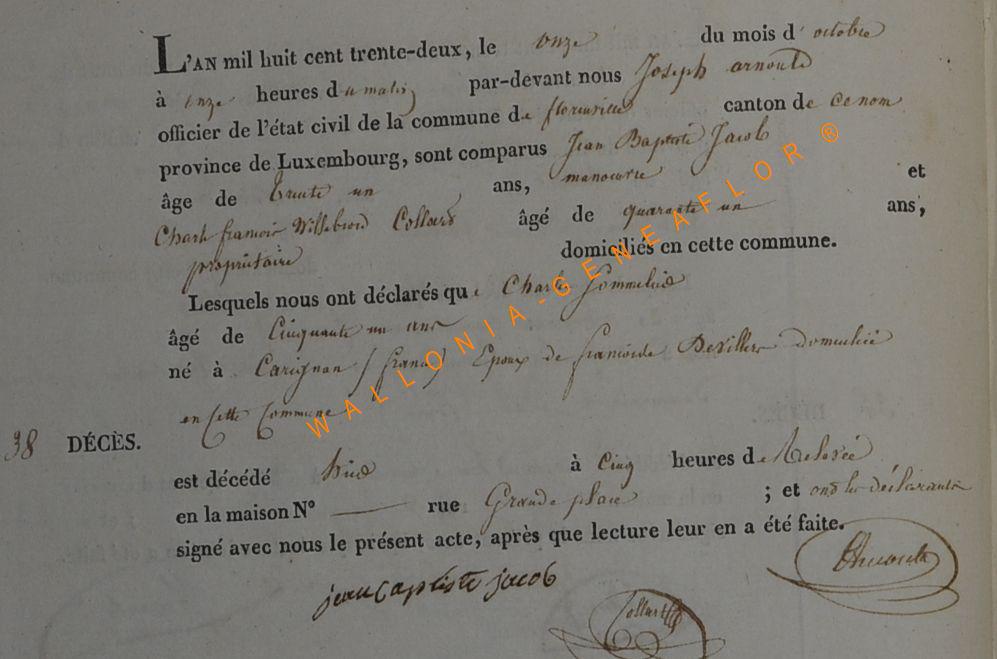 L'AN mil huit cent trente-deux, le onze du mois d'octobre
à onze heures du matin par-devant nous Joseph arnould
officier de l'état civil de la commune de florenville canton de ce nom
province de Luxembourg, sont comparus Jean Baptiste Jacob
âge de trente un ans, manoeuvre et
Charles francois Willebrord Collard âgé de quarante un ans,
propriétaire domiciliés en cette commune.
Lesquels nous ont déclarés que Charles
âgé de Cinquante un ans
né à Carignan (france) Epoux de francoise Devillers domicilié
en Cette Commune
38 DÉCÈS.
est décédé hier à Cinq heures de Relevée
en la maison N° — rue Grande place ; et ont les déclarants
signé avec nous le présent acte, après que lecture leur en a été faite.
jean baptiste jacob
Collard
Arnould
WALLONIA-GENEAFLOR ®